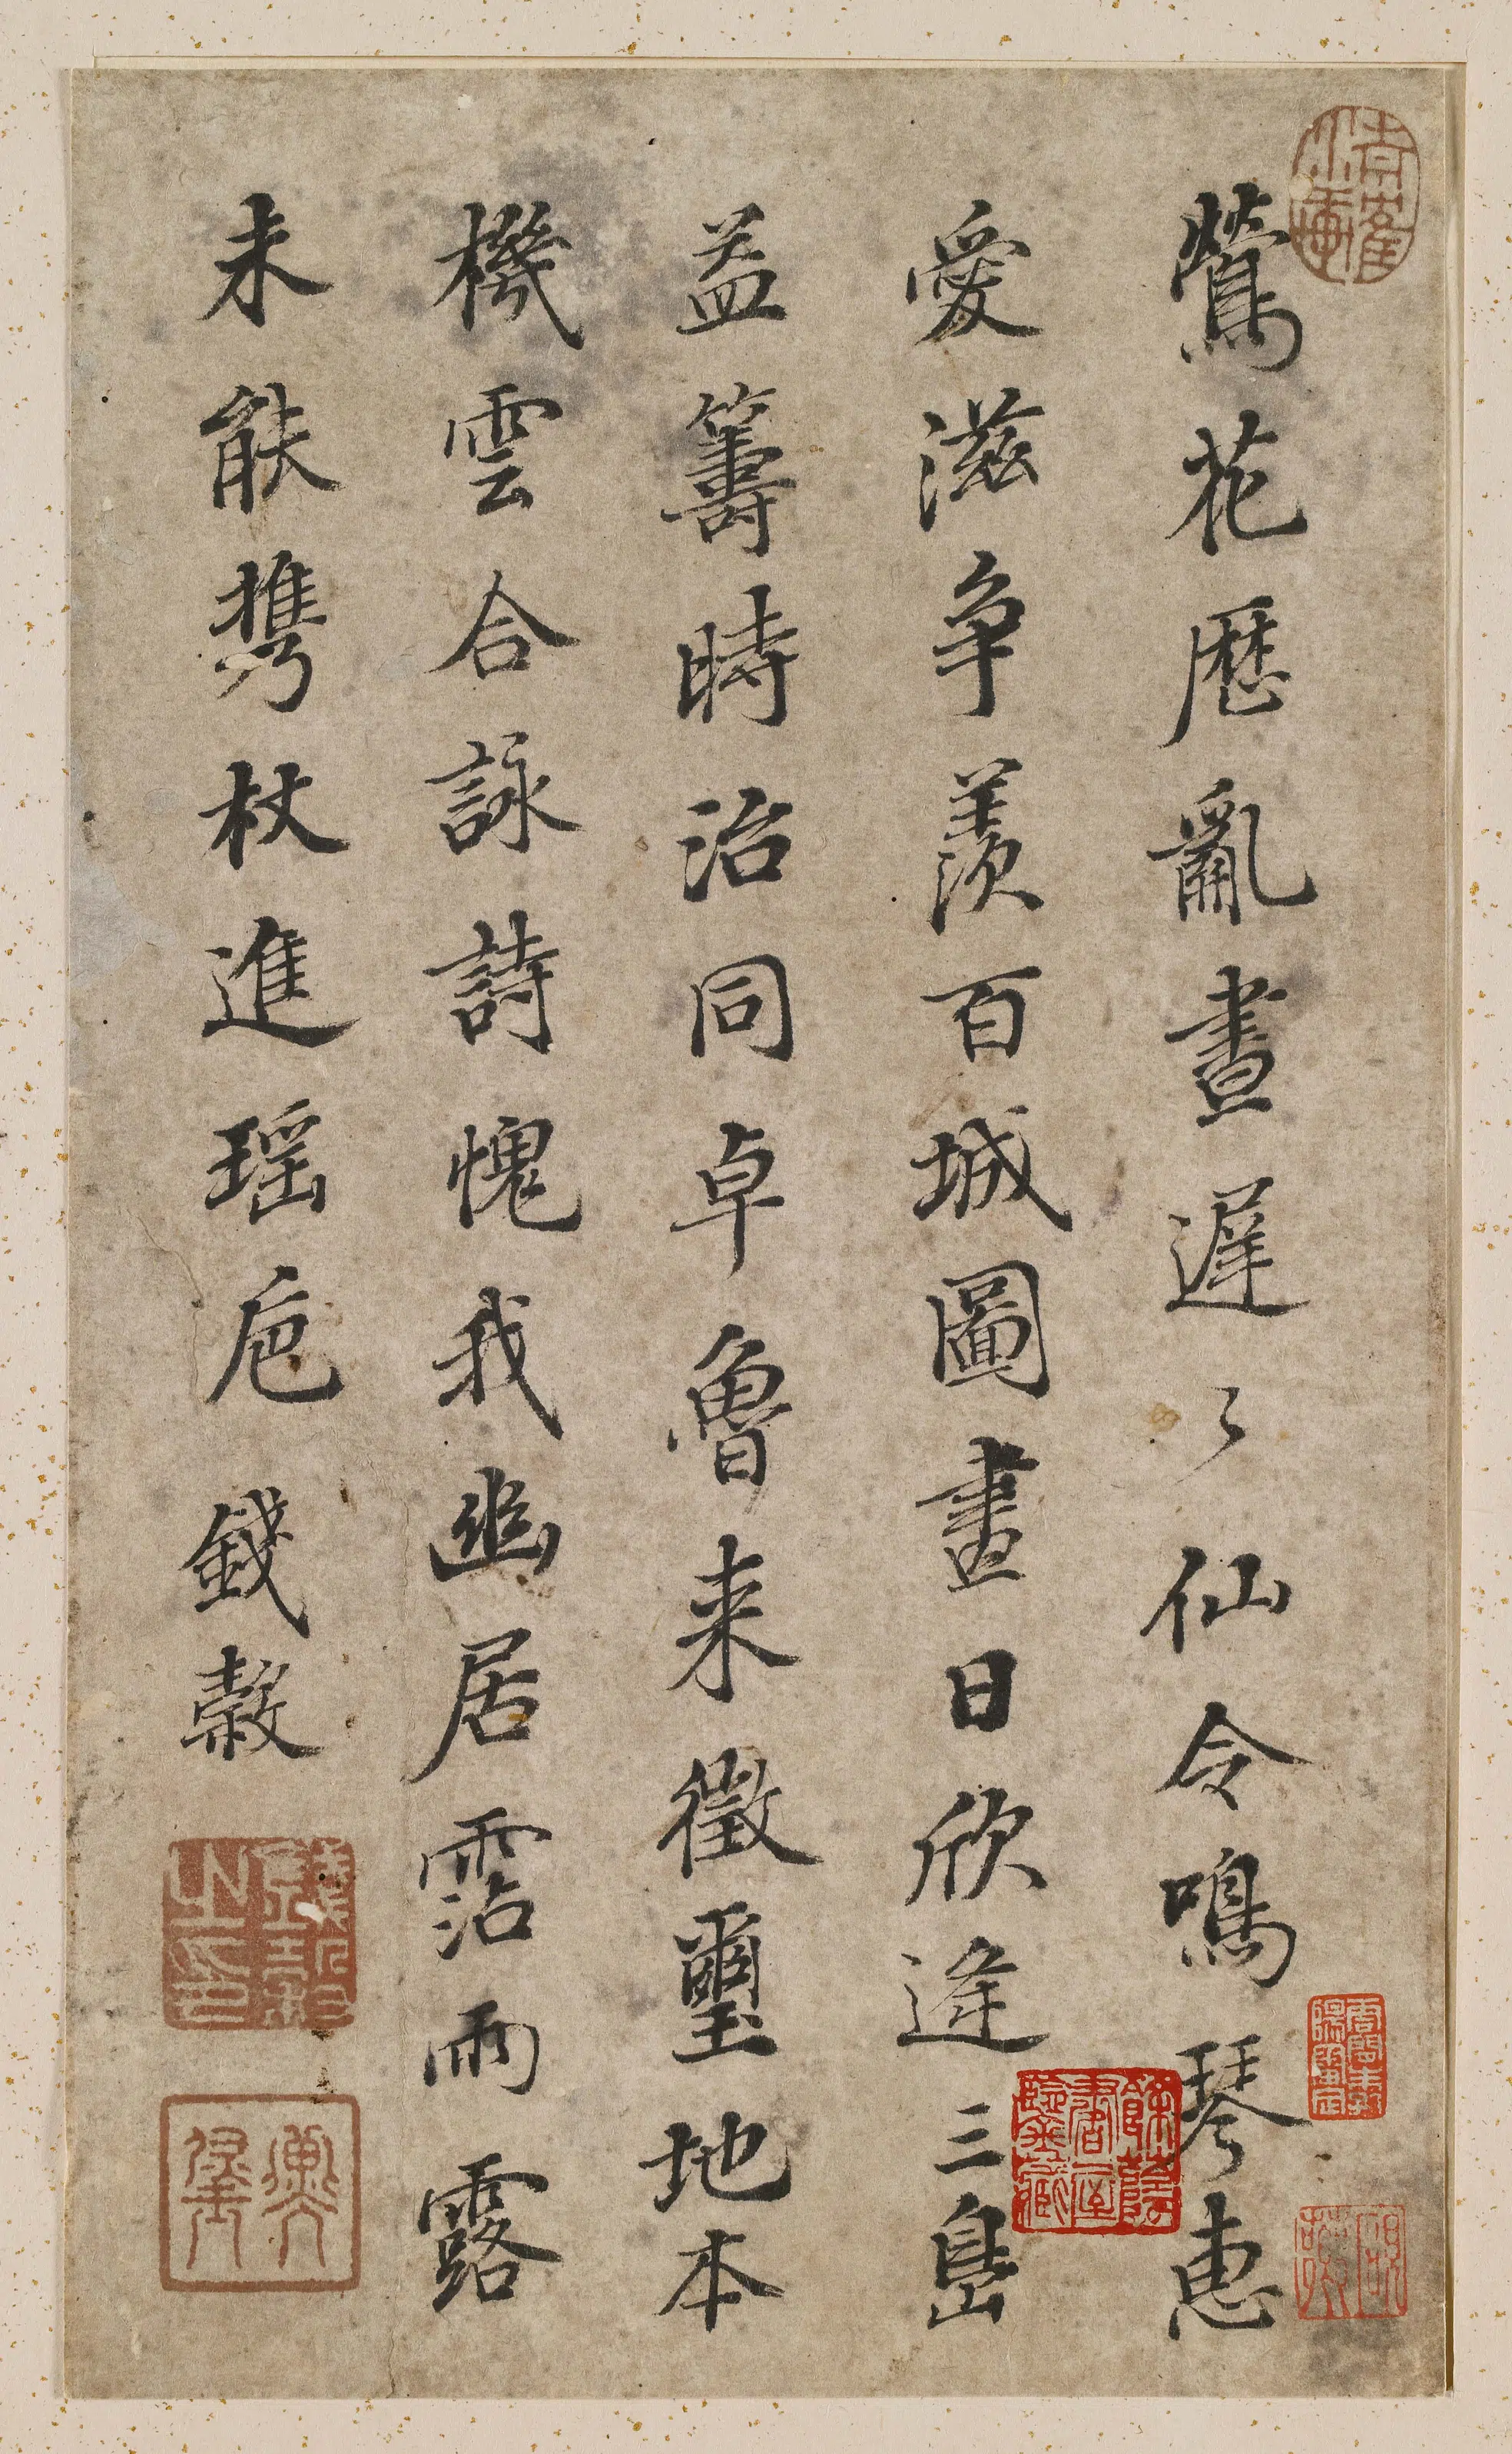 鶯花歷亂晝遲〻仙令鳴琴惠
愛滋争羨百城圖畫日欣逢三島
益籌時治同卓魯来徵璽地本
機雲合詠詩愧我幽居霑雨露
未能携杖進瑶巵 錢穀